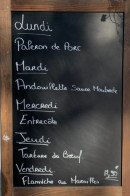 Lundi
Paleron de Porc
Mardi
Andouillette Sauce Moutarde
Mercredi
Entrecôte
Jeudi
Tartare de Bœuf
Vendredi
Flamiche au Maroilles